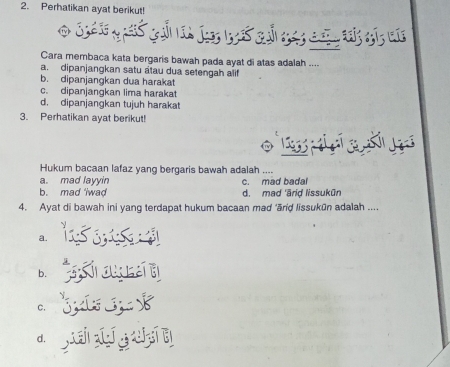 2. Perhatikan ayat berikut!
فَلَمَّا رَاَوْهُ زُلْفَةً سِيْۤـَٔتْ وُجُوْهُ الَّذِيْنَ كَفَرُوْا وَقِيْلَ هٰذَا الَّذِيْ كُنْتُمْ بِهٖ تَدَّعُوْنَ ﴿٢٧﴾
Cara membaca kata bergaris bawah pada ayat di atas adalah ....
a. dipanjangkan satu atau dua setengah alif
b. dipanjangkan dua harakat
c. dipanjangkan lima harakat
d. dipanjangkan tujuh harakat
3. Perhatikan ayat berikut!
فَمَهِّلِ الْكٰفِرِيْنَ اَمْهِلْهُمْ رُوَيْدًا ࣖ ﴿١٧﴾
Hukum bacaan lafaz yang bergaris bawah adalah ....
a. mad layyin c. mad badal
b. mad 'iwaḍ d. mad 'āriḍ lissukūn
4. Ayat di bawah ini yang terdapat hukum bacaan mad 'āriḍ lissukūn adalah ....
a. اِنَّهُمْ يَكِيْدُوْنَ كَيْدًاۙ
b. اِنَّآ اَعْطَيْنٰكَ الْكَوْثَرَۗ
c. كَلَّا سَوْفَ تَعْلَمُوْنَۙ
d. اِنَّآ اَنْزَلْنٰهُ فِيْ لَيْلَةِ الْقَدْرِ